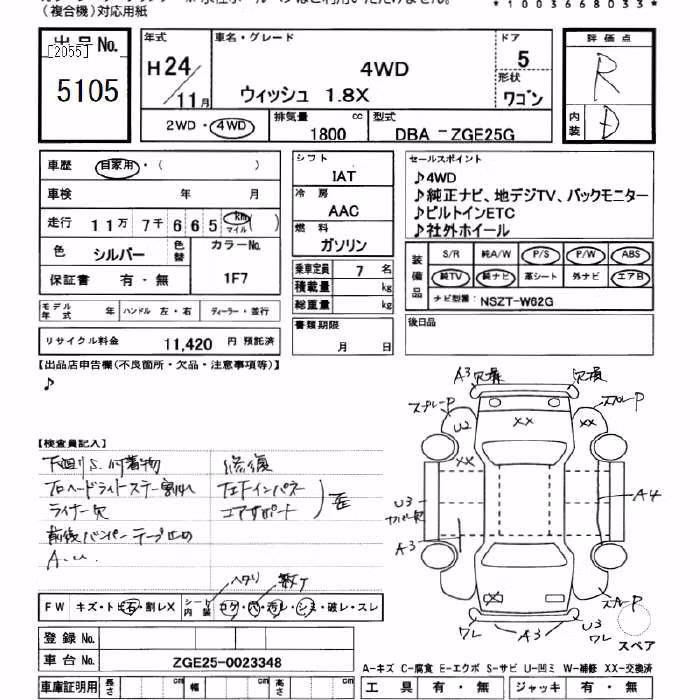 （複合機）対応用紙
*1003668033*
出品No.
[2055]
5105
年式
H24/11月
車名・グレード
4WD
ウィッシュ 1.8X
ドア
5
形状
ワゴン
評価点
R
内装
D
2WD・4WD
排気量 1800 cc
型式 DBA-ZGE25G
車歴 自家用・( )
車検 年 月
走行 11万 7千 6 6 5 km マイル ( )
色 シルバー 色替 カラーNo. 1F7
保証書 有・無
モデル年式 年 ハンドル 左・右 ディーラー・並行
リサイクル料金 11,420 円 預託済
シフト
IAT
冷房
AAC
燃料
ガソリン
乗車定員 7 名
積載量 kg
総重量 kg
書類期限
月 日
セールスポイント
♪4WD
♪純正ナビ、地デジTV、バックモニター
♪ビルトインETC
♪社外ホイール
装備品
S/R 純A/W P/S P/W ABS
純TV 純ナビ 革シート 外ナビ エアB
ナビ型番: NSZT-W62G
後日品
【出品店申告欄(不良箇所・欠品・注意事項等)】
♪
【検査員記入】
下廻りS.付着物
右ヘッドライトステー割れ
ライナー欠
前後バンパーテープ止め
A.U.
修復
左Fインパネ
コアサポート
歪
ヘタリ
FW キズ・トビ石・割レX シート内装 コゲ・穴・汚レ・シミ・破レ・スレ
登録No.
車台No. ZGE25-0023348
車庫証明用 長さ cm 幅 cm 高さ cm
A3 欠損
欠損
スプレーP
スプレーP
U2
XX
XX
XX
U3
カバー欠
A3
A4
XX
スプレーP
ワレ
A3
U3
ワレ
スペア
A-キズ C-腐食 E-エクボ S-サビ U-凹ミ W-補修 XX-交換済
工具 有・無 ジャッキ 有・無